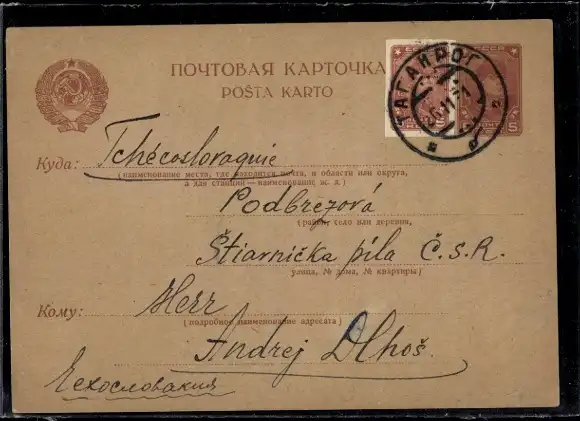 ПОЧТОВАЯ КАРТОЧКА
POŜTA KARTO
ТАГАНРОГ
Куда: Tchécoslovaquie
(наименование места, где находится почта, и области или округа,
а для станции — наименование ж. д.)
Podbrezová
(район, село или деревня,
Štiarnička píla Č.S.R.
улица, № дома, № квартиры)
Кому: Herr
(подробное наименование адресата)
Andrej Dlhoš.
Чехословакия